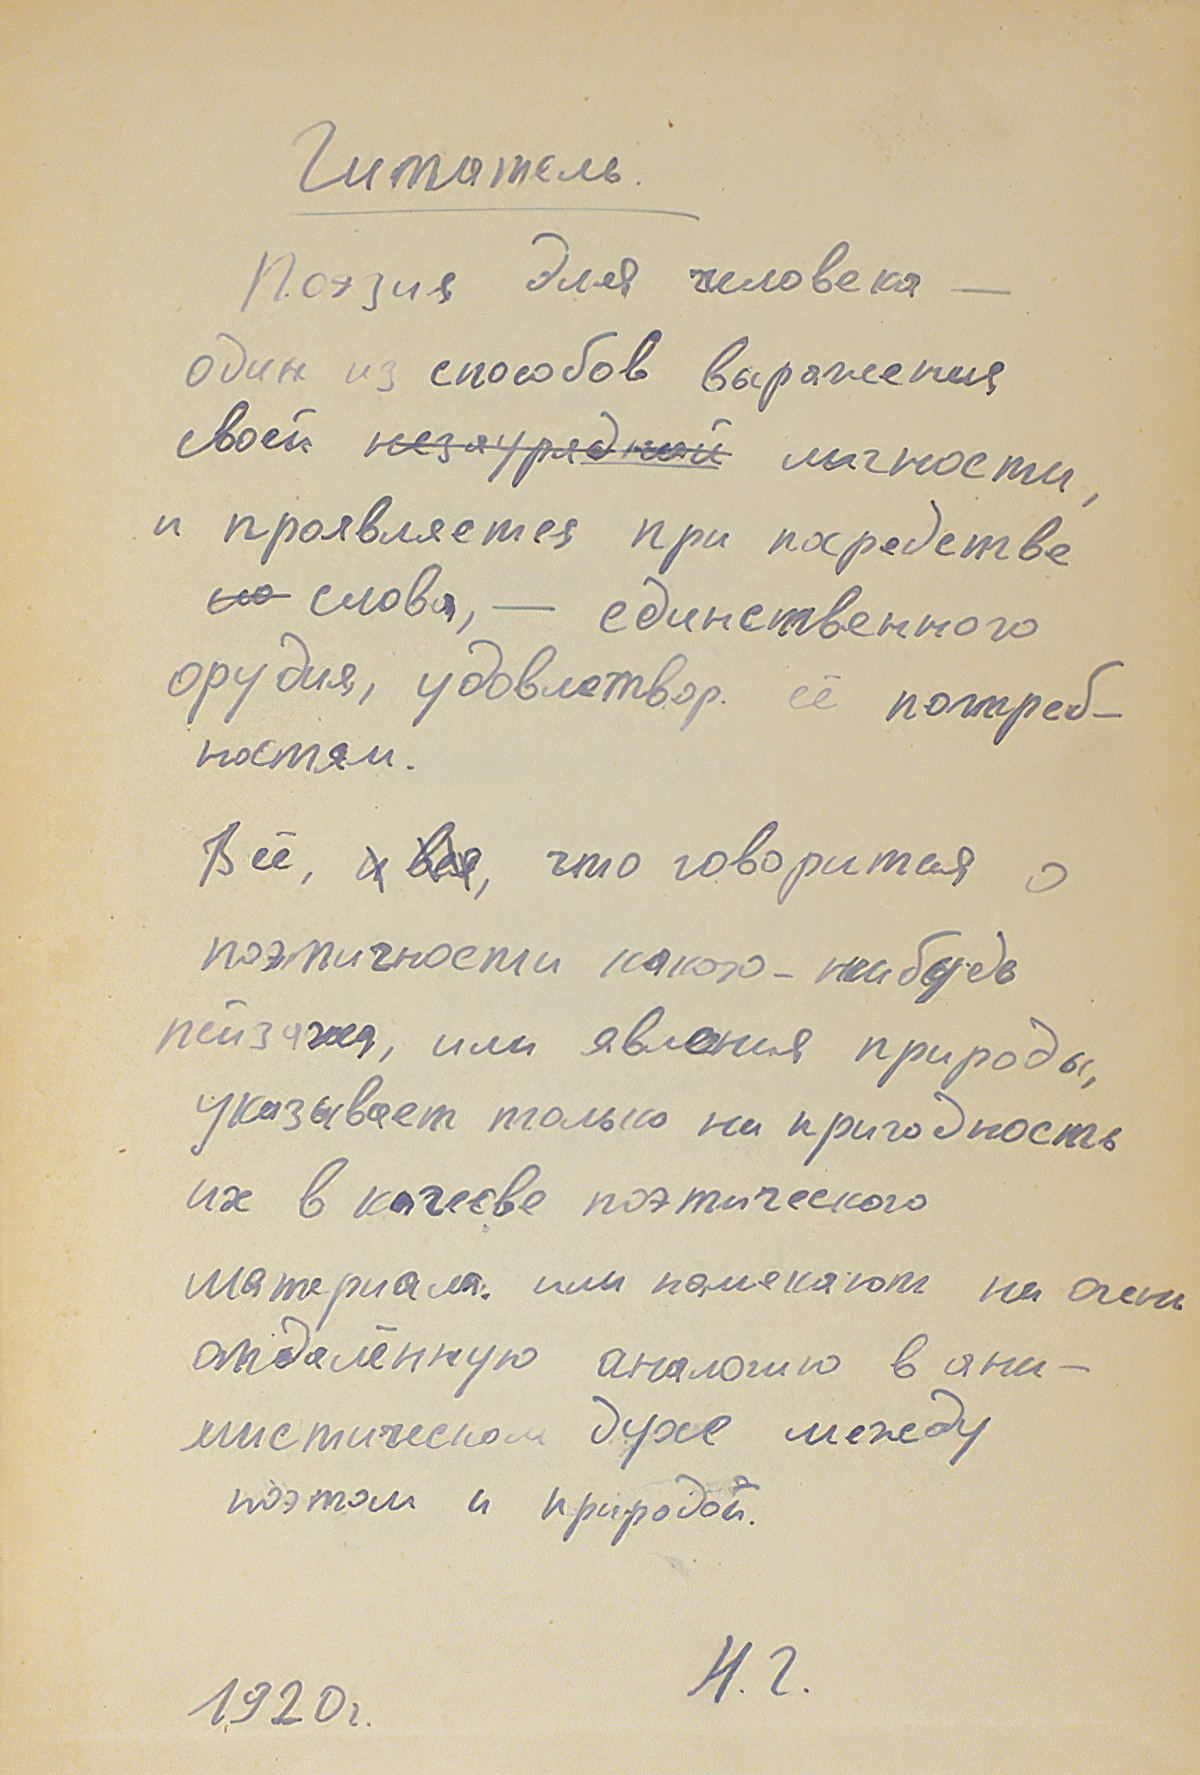 Читатель.
Поэзия для человека —
один из способов выражения
своей незаурядной личности,
и проявляется при посредстве
но слова, — единственного
орудия, удовлетвор. её потреб-
ностям.
Всё, и вся, что говорится о
поэтичности какого-нибудь
пейзажа, или явления природы,
указывает только на пригодность
их в качесве поэтического
материала. или намекают на очень
отдалённую аналогию в ани-
мистическом духе между
поэтом и природой.
Н. Г.
1920 г.